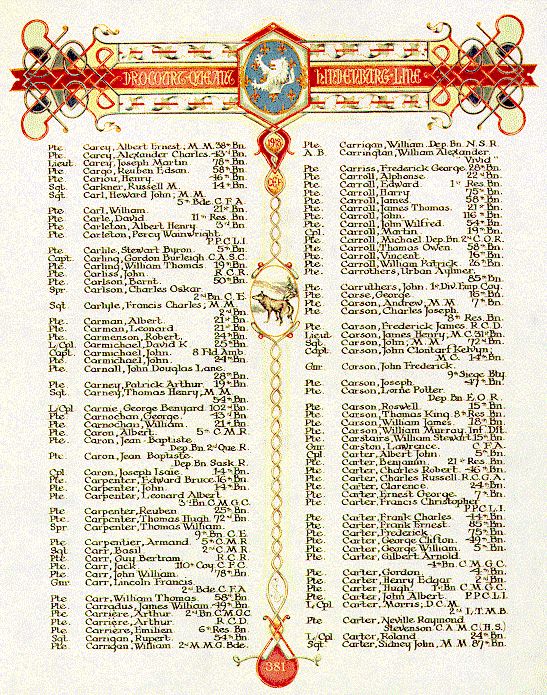 DROCOURT-QUEANT
HINDENBURG LINE
1918
CEF
Pte. Carey, Albert Ernest, M.M. 38th Bn.
Pte. Carey, Alexander Charles 43rd Bn.
Lieut. Carey, Joseph Martin 78th Bn.
Pte. Cargo, Reuben Edson. 58th Bn.
Pte. Cariou, Henry. 46th Bn.
Sgt. Carkner, Russell M. 14th Bn.
Sgt. Carl, Heward John; M.M.
5th Bde. C.F.A.
Pte. Carl, William. 21st Bn.
Pte. Carle, David 11th Res. Bn.
Pte. Carleton, Albert Henry 3rd Bn.
Pte. Carleton, Percy Wainwright
P.P.C.L.I.
Pte. Carlile, Stewart Byron. 5th Bn.
Capt. Carling, Gordon Burleigh C.A.S.C.
Pte. Carling, William Thomas 19th Bn.
Pte. Carliss, John R.C.R.
Pte. Carlson, Bernt 50th Bn.
Spr. Carlson, Charles Oskar
2nd Bn. C.E.
Sgt. Carlyle, Francis Charles; M.M.
2nd Bn.
Pte. Carman, Albert. 21st Bn.
Pte. Carman, Leonard 21st Bn.
Pte. Carmenson, Robert. 24th Bn.
L/Cpl. Carmichael, David K 25th Bn.
Capt. Carmichael, John 8 Fld. Amb.
Pte. Carmichael, John. 24th Bn.
Pte. Carnall, John Douglas Lane
28th Bn.
Pte. Carney, Patrick Arthur 19th Bn.
Sgt. Carney, Thomas Henry, M.M.
54th Bn.
L/Cpl. Carnie, George Benyard 102nd Bn.
Pte. Carnochan, George. 43rd Bn.
Pte. Carnochan, William. 21st Bn.
Pte. Caron, Albert 5th C.M.R.
Pte. Caron, Jean-Baptiste
Dep. Bn. 2nd Que. R.
Pte. Caron, Jean Baptiste
Dep. Bn. Sask. R.
Cpl. Caron, Joseph Isaie 14th Bn.
Pte. Carpenter, Edward Bruce 16th Bn.
Pte. Carpenter, John. 14th Bn.
Pte. Carpenter, Leonard Albert
3rd Bn. C.M.G.C.
Pte. Carpenter, Reuben 25th Bn.
Pte. Carpenter, Thomas Hugh 72nd Bn.
Spr. Carpenter, Thomas William
9th Bn. C.E.
Pte. Carpentier, Armand. 5th C.M.R.
Sgt. Carr, Basil 2nd C.M.R.
Pte. Carr, Guy Bertram R.C.R.
Pte. Carr, Jack 110th Coy. C.F.C.
Pte. Carr, John William. 78th Bn.
Gnr. Carr, Lincoln Francis
2nd Bde. C.F.A.
Pte. Carr, William Thomas 58th Bn.
Pte. Carradus, James William 49th Bn.
Pte. Carrière, Arthur 2nd Bn. C.M.G.C.
Pte. Carrière, Arthur R.C.D.
Pte. Carrière, Emilien 6th Res. Bn.
Sgt. Carrigan, Rupert 54th Bn.
Pte. Carrigan, William 2nd M.M.G. Bde.
Pte. Carrigan, William Dep. Bn. N.S.R.
A.B. Carrington, William Alexander
"Vivid"
Pte. Carriss, Frederick George 28th Bn.
Pte. Carroll, Alphonse 22nd Bn.
Pte. Carroll, Edward 1st Res. Bn.
Pte. Carroll, Harry 75th Bn.
Pte. Carroll, James 58th Bn.
Pte. Carroll, James Thomas 21st Bn.
Pte. Carroll, John. 116th Bn.
Pte. Carroll, John Wilfred. 54th Bn.
Cpl. Carroll, Martin 19th Bn.
Pte. Carroll, Michael Dep. Bn. 2nd C.O.R.
Pte. Carroll, Thomas Owen 58th Bn.
Pte. Carroll, Vincent 16th Bn.
Pte. Carroll, William Patrick 26th Bn.
Pte. Carrothers, Urban Aylmer.
85th Bn.
Pte. Carruthers, John 1st Div. Emp. Coy.
Pte. Carse, George 16th Bn.
Pte. Carson, Andrew, M.M. 7th Bn.
Pte. Carson, Charles Joseph.
8th Res. Bn.
Pte. Carson, Frederick James R.C.D.
Lieut. Carson, James Henry, M.C. 31st Bn.
Sgt. Carson, John; M.M. 72nd Bn.
Capt. Carson, John Clontarf Kelvyn,
M.C. 14th Bn.
Gnr. Carson, John Frederick.
9th Siege Bty.
Pte. Carson, Joseph 47th Bn.
Pte. Carson, Lorne Potter
Dep. Bn. E.O.R.
Pte. Carson, Roswell 15th Bn.
Pte. Carson, Thomas King 8th Res. Bn.
Pte. Carson, William James 18th Bn.
Pte. Carson, William Murray Inf. Dft.
Pte. Carstairs, William Stewart 15th Bn.
Gnr. Carston, Lawrence. C.F.A.
Cpl. Carter, Albert John 5th Bn.
Pte. Carter, Benjamin. 21st Res. Bn.
Pte. Carter, Charles Robert 46th Bn.
Pte. Carter, Charles Russell R.C.G.A.
Pte. Carter, Clarence. 24th Bn.
Pte. Carter, Ernest George 7th Bn.
Pte. Carter, Francis Christopher
P.P.C.L.I.
Pte. Carter, Frank Charles 44th Bn.
Pte. Carter, Frank Ernest 85th Bn.
Pte. Carter, Frederick 75th Bn.
Pte. Carter, George Clifton 49th Bn.
Pte. Carter, George William 5th Bn.
Pte. Carter, Gilbert Arnold
4th Bn. C.M.G.C.
Pte. Carter, Gordon 4th Bn.
Pte. Carter, Henry Edgar 2nd Bn.
Pte. Carter, Hugh 1st Bn. C.M.G.C.
Pte. Carter, John Albert P.P.C.L.I.
L/Cpl. Carter, Morris; D.C.M.
2nd L.T.M.B.
Pte. Carter, Neville Raymond
Stevenson C.A.M.C. (H.S.)
L/Cpl. Carter, Roland 24th Bn.
Sgt. Carter, Sidney John, M.M. 87th Bn.
381